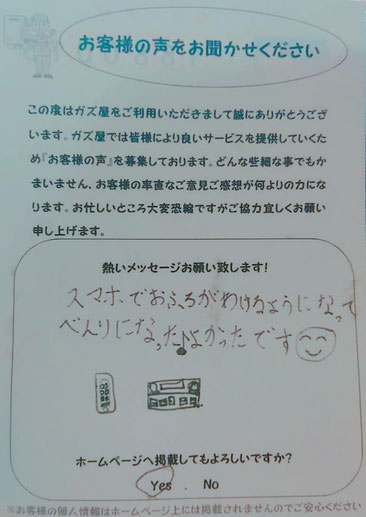 お客様の声をお聞かせください
この度はガズ屋をご利用いただきまして誠にありがとうござ
います。ガズ屋では皆様により良いサービスを提供していくた
め『お客様の声』を募集しております。どんな些細な事でもか
まいません、お客様の率直なご意見ご感想が何よりの力にな
ります。お忙しいところ大変恐縮ですがご協力宜しくお願い
申し上げます。
熱いメッセージお願い致します!
スマホでおふろがわけるようになって
べんりになったよかったです
ホームページへ掲載してもよろしいですか?
Yes . No
※お客様の個人情報はホームページ上には掲載されませんのでご安心ください